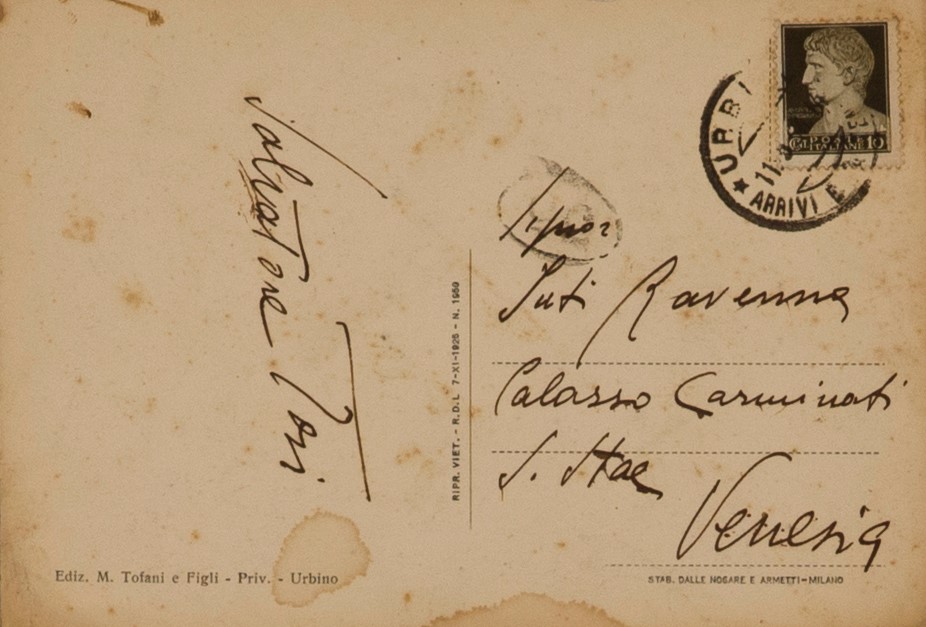 Salvatore Tosi
Signor
Juti Ravenna
Palazzo Carminati
S. Stae
Venezia
URBI
11
ARRIVI E
POSTE
ITALIANE 10
RIPR. VIET. - R.D.L. 7-XI-1925 - N. 1950
Ediz. M. Tofani e Figli - Priv. - Urbino
STAB. DALLE NOGARE E ARMETTI-MILANO